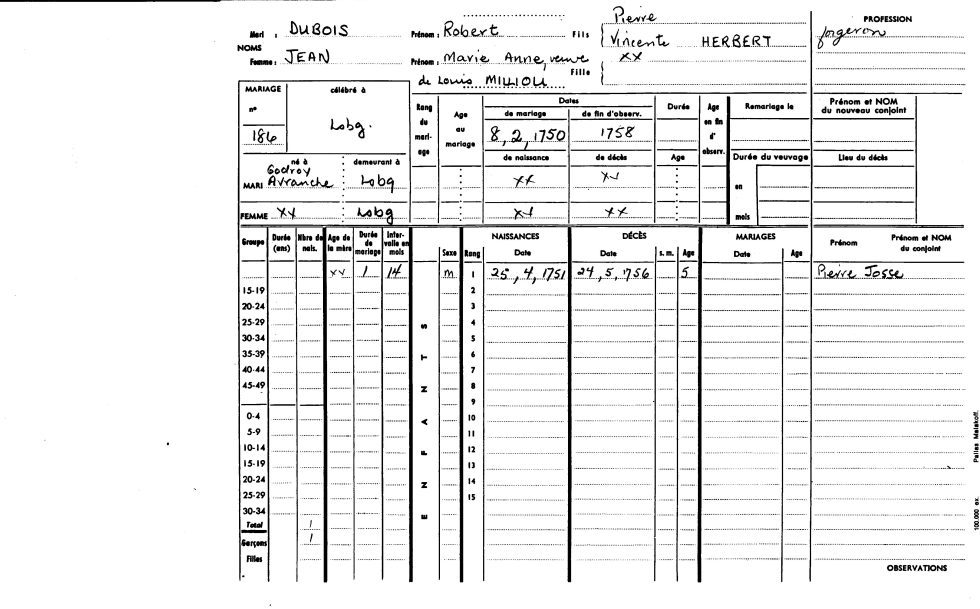 Pierre
Mari : DUBOIS Prénom : Robert Fils Vincente HERBERT
NOMS
Femme : JEAN Prénom : Marie Anne, veuve xx
de Louis MILLIOU Fille
PROFESSION
forgeron
MARIAGE célébré à
n°
186 Lobg.
Rang du mari-age
Age au mariage
Dates
de mariage de fin d'observ.
8, 2, 1750 1758
de naissance de décès
xx xx
xx xx
Durée
Age
Age en fin d'observ.
Remariage le
Durée du veuvage
en
mois
Prénom et NOM
du nouveau conjoint
Lieu du décès
né à demeurant à
Godroy
MARI Avranche Lobg
FEMME xx Lobg
Groupe Durée (ans) Nbre de nais. Age de la mère Durée de mariage Inter-valle en mois Sexe Rang NAISSANCES Date DÉCÈS Date s. m. Age MARIAGES Date Age Prénom Prénom et NOM du conjoint
xx 1 14 m 1 25, 4, 1751 24, 5, 1756 5 Pierre Josse
15-19 2
20-24 3
25-29 4
30-34 5
35-39 6
40-44 7
45-49 8
9
0-4 10
5-9 11
10-14 12
15-19 13
20-24 14
25-29 15
30-34
Total 1
Garçons 1
Filles
ENFANTS
OBSERVATIONS
100.000 ex. Pallas Malakoff.